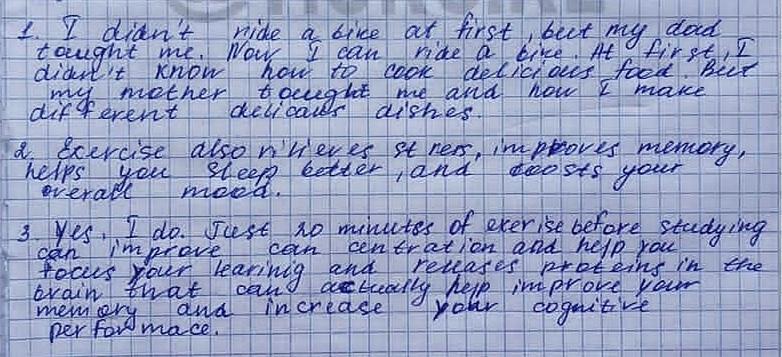 1. I didn't ride a bike at first, but my dad
taught me. Now I can ride a bike At first, I
didn't know how to cook delicious food. But
my mother tought me and now I make
different delicaus dishes.
2. Exercise also rilieves stress, improves memory,
helps you sleep better, and boosts your
overall mood.
3. Yes, I do. Just 20 minutes of exerise before studying
can improve can centration and help you
focus your learinig and releases proteins in the
brain that can actually help improve your
memory and increase your cognitive
performace.